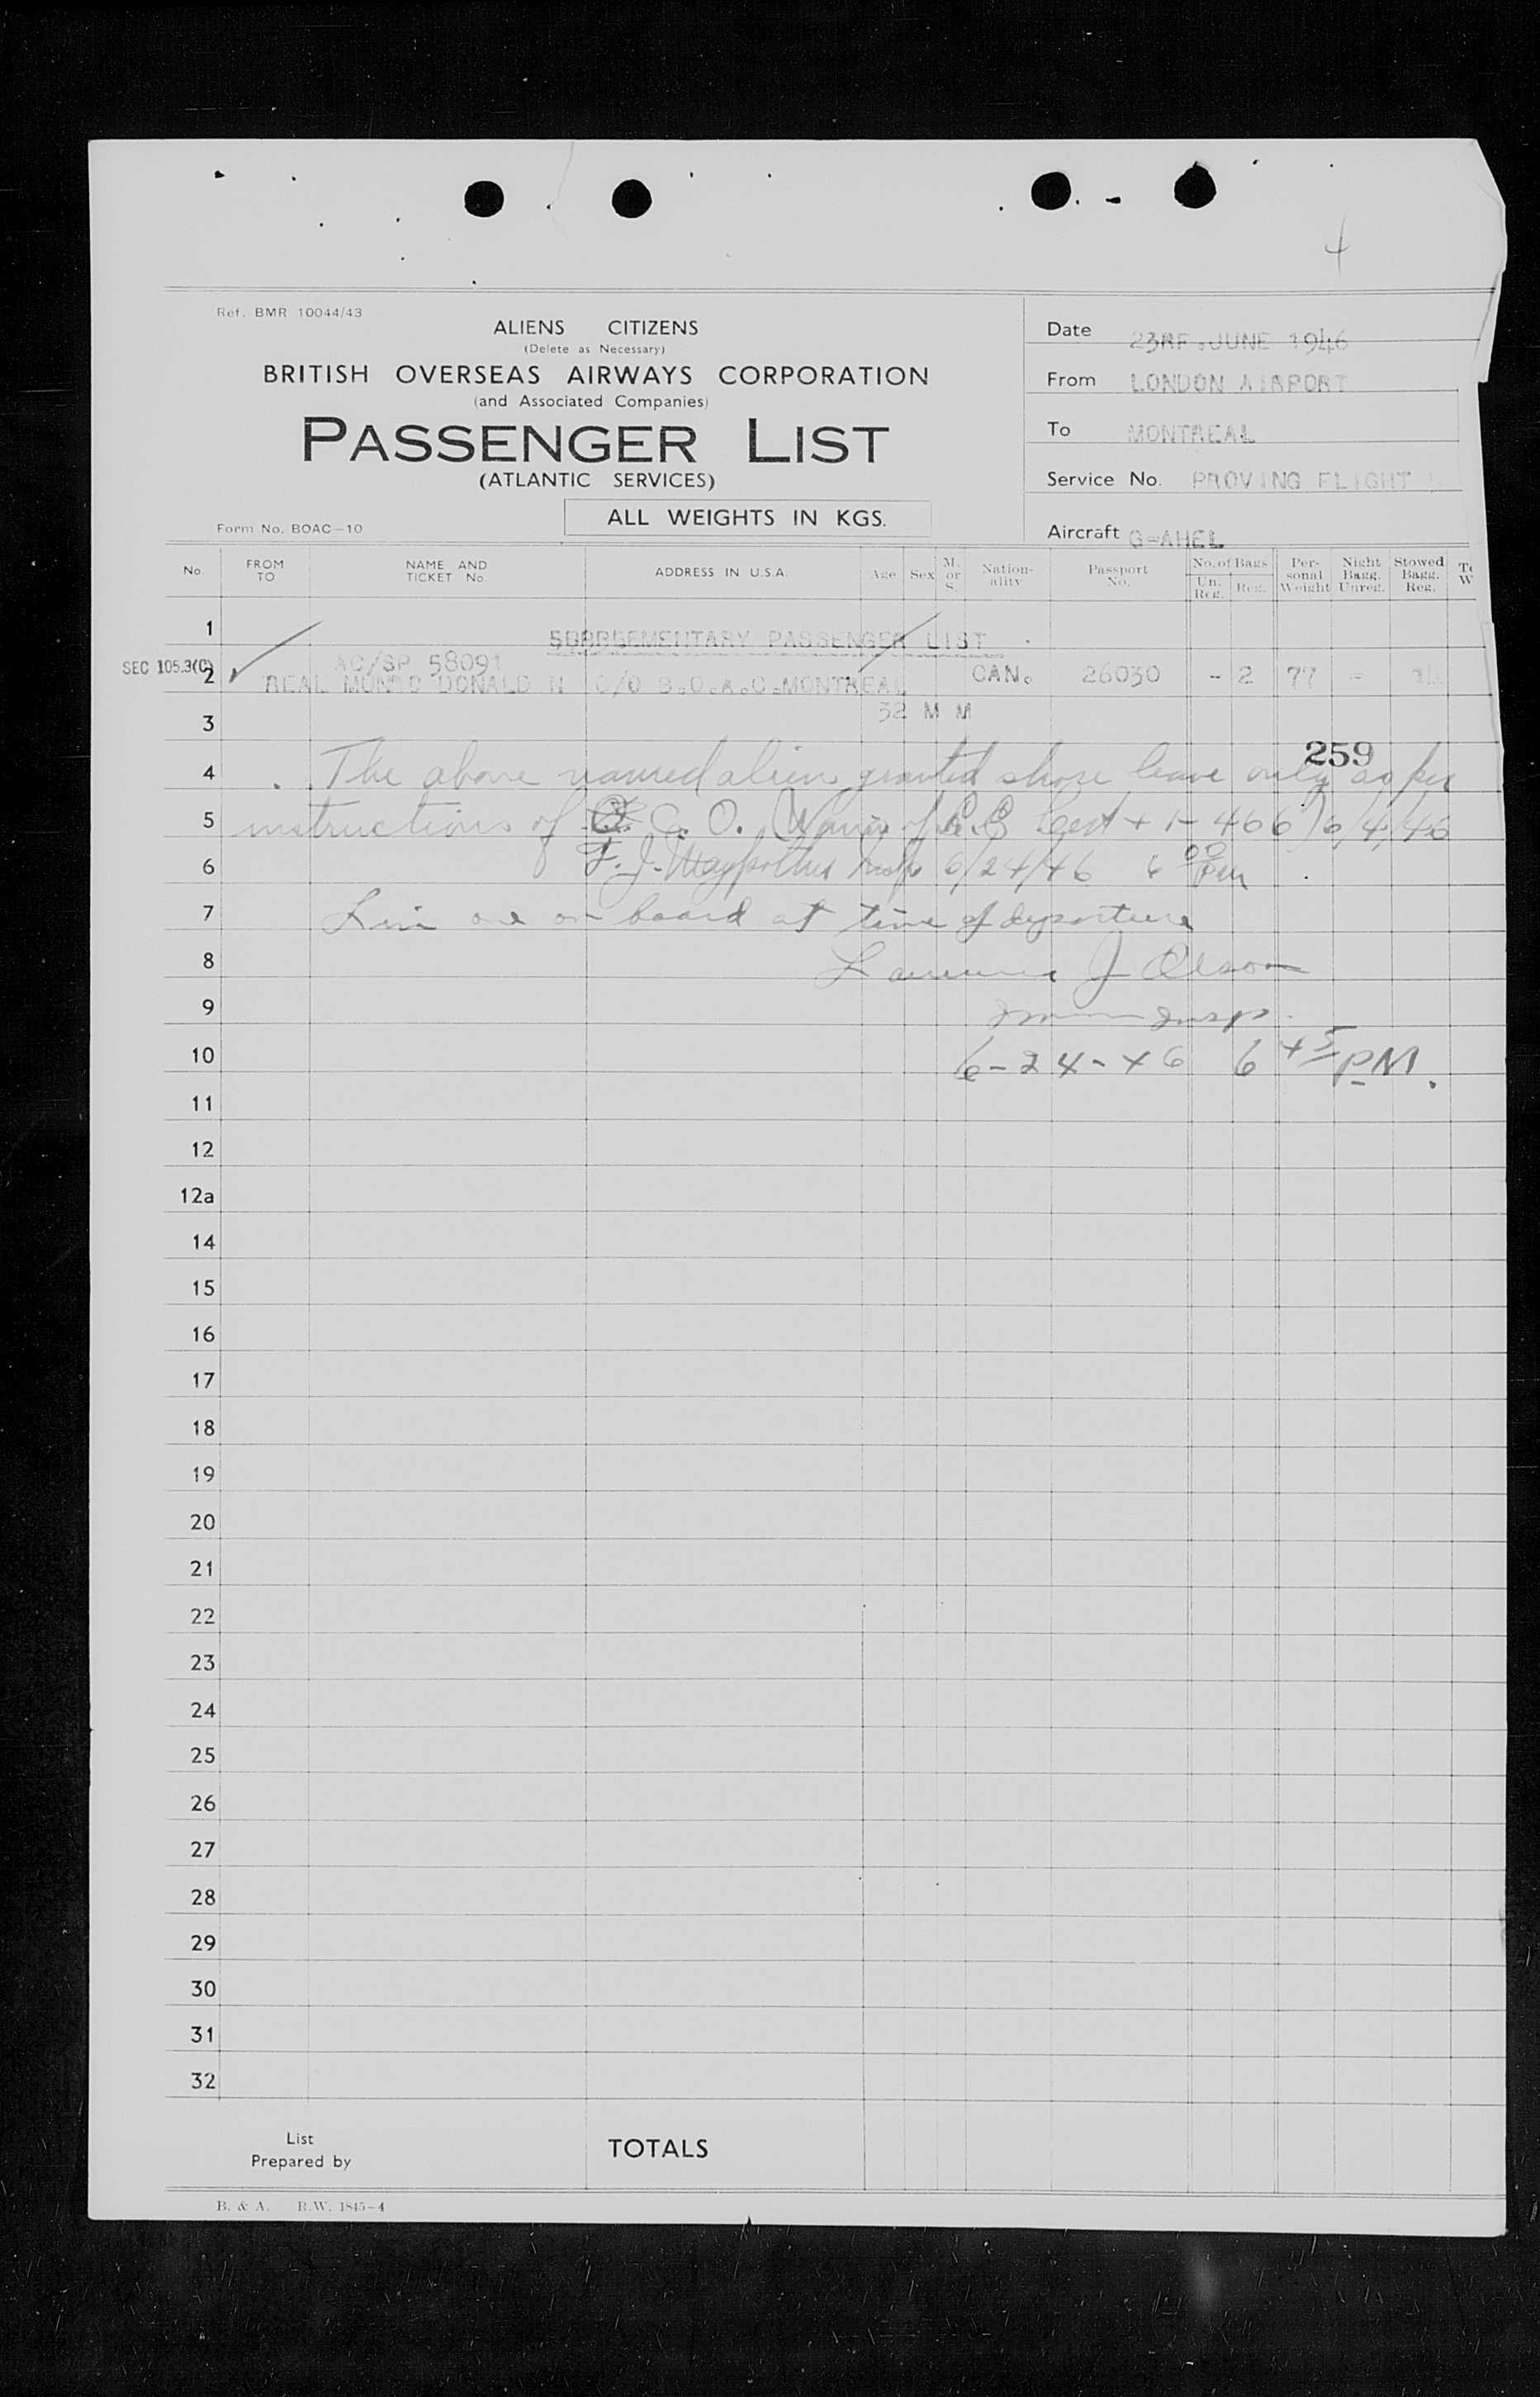 4
Ref. BMR 10044/43
ALIENS CITIZENS
(Delete as Necessary)
BRITISH OVERSEAS AIRWAYS CORPORATION
(and Associated Companies)
PASSENGER LIST
(ATLANTIC SERVICES)
ALL WEIGHTS IN KGS.
Form No. BOAC—10
Date 23RF.JUNE 1946
From LONDON AIRPORT
To MONTREAL
Service No. PROVING FLIGHT
Aircraft G-AHEL
No. FROM TO NAME AND TICKET No. ADDRESS IN U.S.A. Age Sex M. or S. Nation-ality Passport No. No. of Bags Un. Reg. Reg. Per-sonal Weight Night Bagg. Unreg. Stowed Bagg. Reg.
1 PASSENGER LIST
AC/SP 58091
SEC 105.3(C) 2 REAL DONALD N C/O B.O.A.C.MONTREAL CAN. 26030 - 2 77 -
3 32 M M
259
4 The above named alien granted shore leave only as per
5 instructions of C. O. 6/4/46
6 F. J. Insp 6/24/46 6 00 pm
7 one on board at time of departure
8 J Olson
9 Insp.
10 6-24-46 6 45 PM.
11
12
12a
14
15
16
17
18
19
20
21
22
23
24
25
26
27
28
29
30
31
32
List
Prepared by
TOTALS
B. & A. R.W. 1845-4